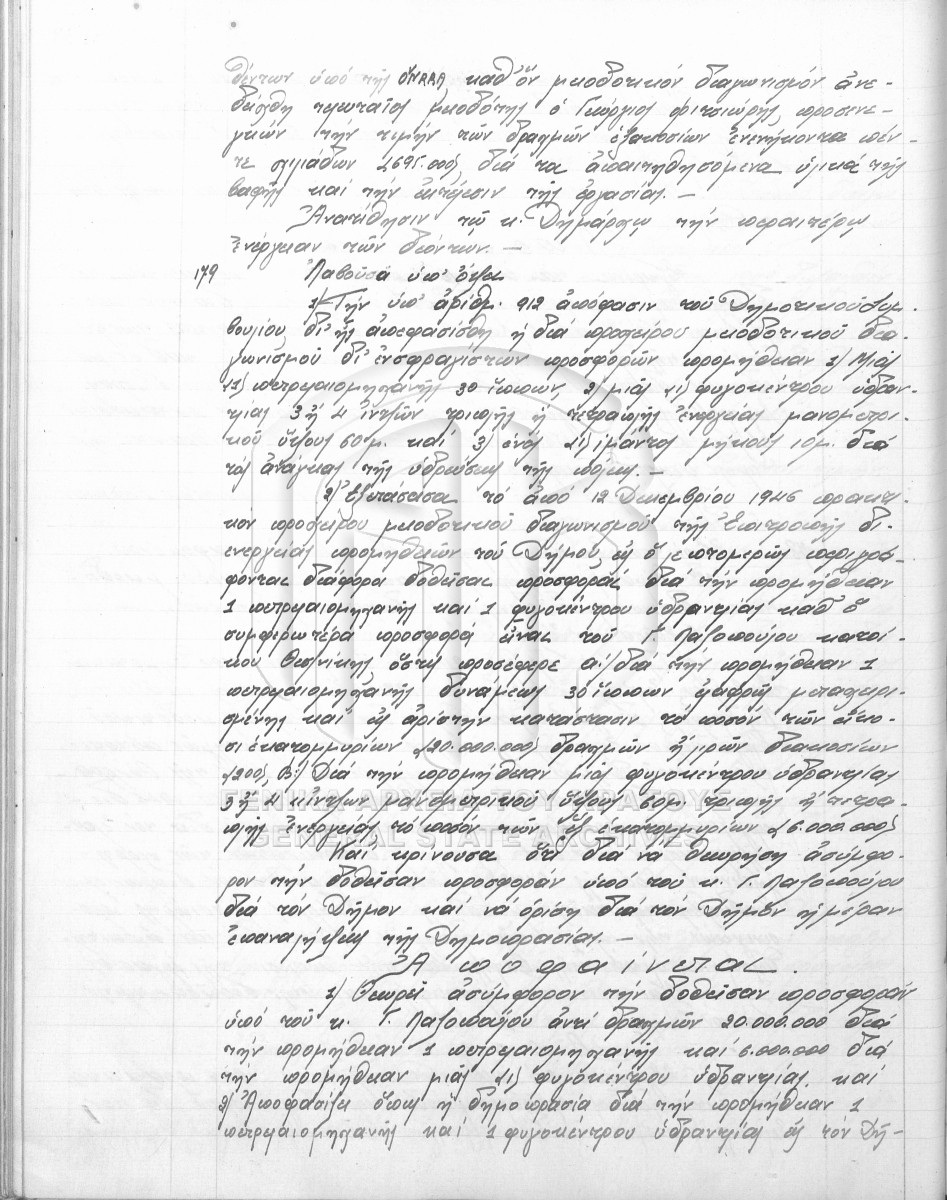 θέντων ὑπό τῆς ΟΥΝRRΑ, καθ' ὅν μειοδοτικόν διαγωνισμόν ἀνε-
δείχθη τελευταῖος μειοδότης ὁ Γεώργιος Φιτσιώρης, προσενε-
γκών τήν τιμήν τῶν δραχμῶν ἑξακοσίων ἐνενήκοντα πέν-
τε χιλιάδων (695.000), διά τα ἀπαιτηθησόμενα ὑλικά τῆς
βαφῆς καί τήν ἐκτέλεσιν τῆς ἐργασίας. —
Ἀνατίθησιν τῷ κ. Δημάρχῳ τήν περαιτέρω
ἐνέργειαν τῶν δεόντων. —
179 Λαβοῦσα ὑπ' ὄψει
1) Τήν ὑπ' ἀριθμ. 912 ἀπόφασιν τοῦ Δημοτικοῦ Συμ-
βουλίου, δι' ἧς ἀπεφασίσθη ἡ διά προχείρου μειοδοτικοῦ δια-
γωνισμοῦ δι' ἐνσφραγίστων προσφορῶν προμήθειαν 1) Μιᾶς
(1) πετρελαιομηχανῆς 30 ἵππων, 2) μιᾶς (1) φυγοκέντρου ὑδραν-
τλίας 3 ἤ 4 ἰντζῶν τριπλῆς ἤ τετραπλῆς ἐνεργείας μανομετρι-
κοῦ ὕψους 60 μ. καί 3) ἑνός (1) ἱμάντος μήκους 10 μ. διά
τάς ἀνάγκας τῆς ὑδρεύσεως τῆς πόλεως. —
2) Ἐξετάσασα τό ἀπό 12 Δεκεμβρίου 1946 πρακτι-
κόν προχείρου μειοδοτικοῦ διαγωνισμοῦ τῆς Ἐπιτροπῆς δι-
ενεργείας προμηθειῶν τοῦ Δήμου, εἰς ὅ λεπτομερῶς περιγρά-
φονται διάφοροι δοθεῖσαι προσφοραί διά τήν προμήθειαν
1 πετρελαιομηχανῆς καί 1 φυγοκέντρου ὑδραντλίας καθ' ὅ
συμφερωτέρα προσφορά εἶναι τοῦ Γ. Λαζοπούλου κατοί-
κου Θεσ/νίκης, ὅστις προσέφερε α:) διά τήν προμήθειαν 1
πετρελαιομηχανῆς δυνάμεως 30 ἵππων ἐλαφρῶς μεταχειρι-
σμένης καί εἰς ἀρίστην κατάστασιν τό ποσόν τῶν εἴκο-
σι ἑκατομμυρίων (20.000.000) δραχμῶν ἤ λιρῶν διακοσίων
(200). Β:) Διά τήν προμήθειαν μιᾶς φυγοκέντρου ὑδραντλίας
3 ἤ 4 ἰντζῶν μανομετρικοῦ ὕψους 60 μ. τριπλῆς ἤ τετρα-
πλῆς ἐνεργείας τό ποσόν τῶν ἕξ ἑκατομμυρίων (6.000.000)
Καί κρίνουσα ὅτι διά να θεωρήση ἀσύμφο-
ρον τήν δοθεῖσαν προσφοράν ὑπό τοῦ κ. Γ. Λαζοπούλου
διά τόν Δῆμον καί νά ὁρίση διά τόν Δῆμον ἡμέραν
ἐπαναλήψεως τῆς Δημοπρασίας. —
Ἀποφαίνεται.
1) Θεωρεῖ ἀσύμφορον τήν δοθεῖσαν προσφοράν
ὑπό τοῦ κ. Γ. Λαζοπούλου ἀντί δραχμῶν 20.000.000 διά
τήν προμήθειαν 1 πετρελαιομηχανῆς καί 6.000.000 διά
τήν προμήθειαν μιᾶς (1) φυγοκέντρου ὑδραντλίας, καί
2) Ἀποφασίζει ὅπως ἡ δημοπρασία διά τήν προμήθειαν 1
πετρελαιομηχανῆς καί 1 φυγοκέντρου ὑδραντλίας εἰς τόν Δῆ-
ΓΕΝΙΚΑ ΑΡΧΕΙΑ ΤΟΥ ΚΡΑΤΟΥΣ
GENERAL STATE ARCHIVES